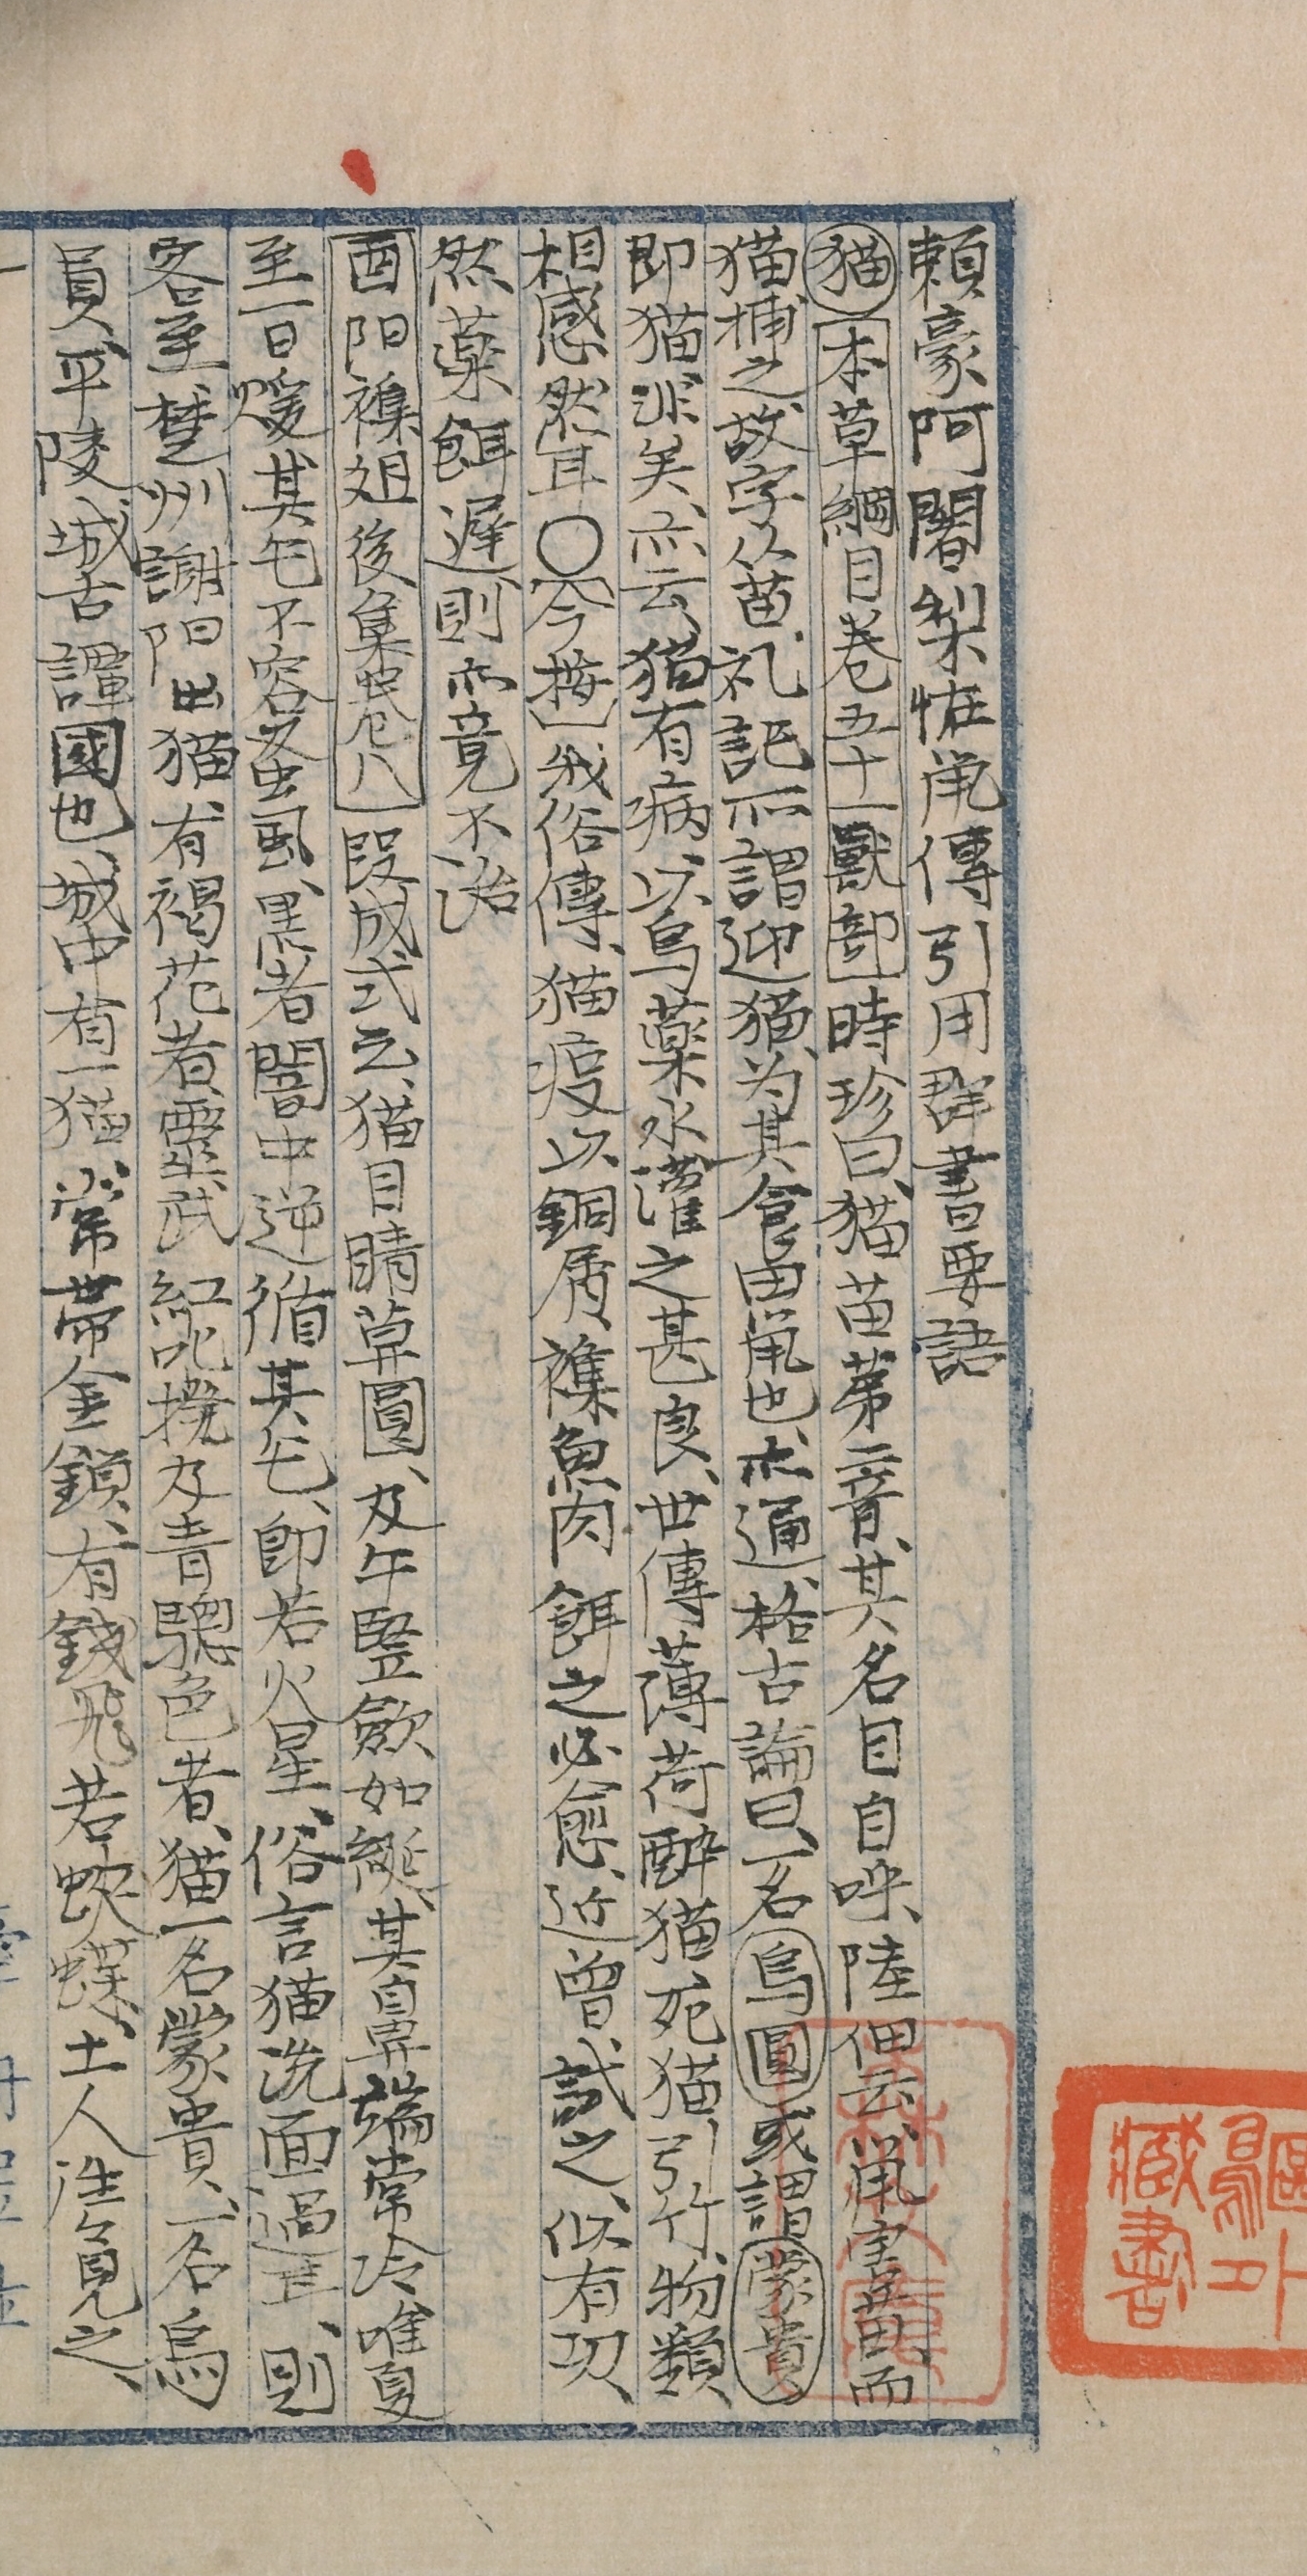 頼豪阿闍梨恠鼠傳引用群書要語
猫 本草綱目卷五十一獸部 時珍曰、猫苗茅二音、其名目自呼、陸佃云、鼠害苗、而
猫捕之、故字从苗、礼記所謂迎猫、为其食田鼠也、亦通、格古論曰、一名烏圓或謂蒙貴
即猫非矣、亦云、猫有病、以烏薬水灌之甚良、世傳薄荷酔猫、死猫引竹、物類
相感然耳〇今按我俗傳、猫疫以銅屑襍魚肉餌之必愈、近曾試之、似有功、
然薬餌遅、則亦竟不治
酉阳襍俎後集卷八 段成式云、猫目睛茣圓、及午竪斂如綖、其鼻端常冷唯夏
至一日煖、其毛不容蚤虱、黒者闇中逆循其毛、即若火星、俗言猫洗面過耳、則
客至、楚州謝阳出猫、有褐花者、霊武紅叱撥及青驄色者、猫一名蒙貴、一名烏
員、平陵城古譚國也、城中有一猫、常帯金鎖、有錢飛若蛱蝶、土人往々見之、
藏書